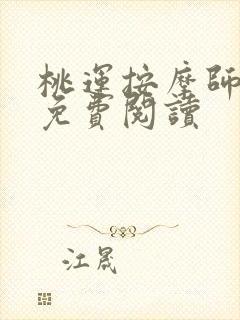 桃運按摩師
免費閱讀
江晟